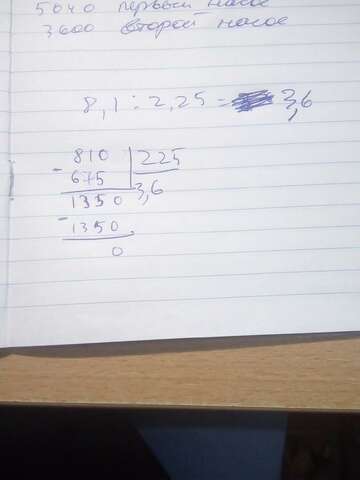 5040 первый насос
3600 второй насос
8,1 : 2,25 = 3,6
810 | 225
- 675 3,6
1350
- 1350
0